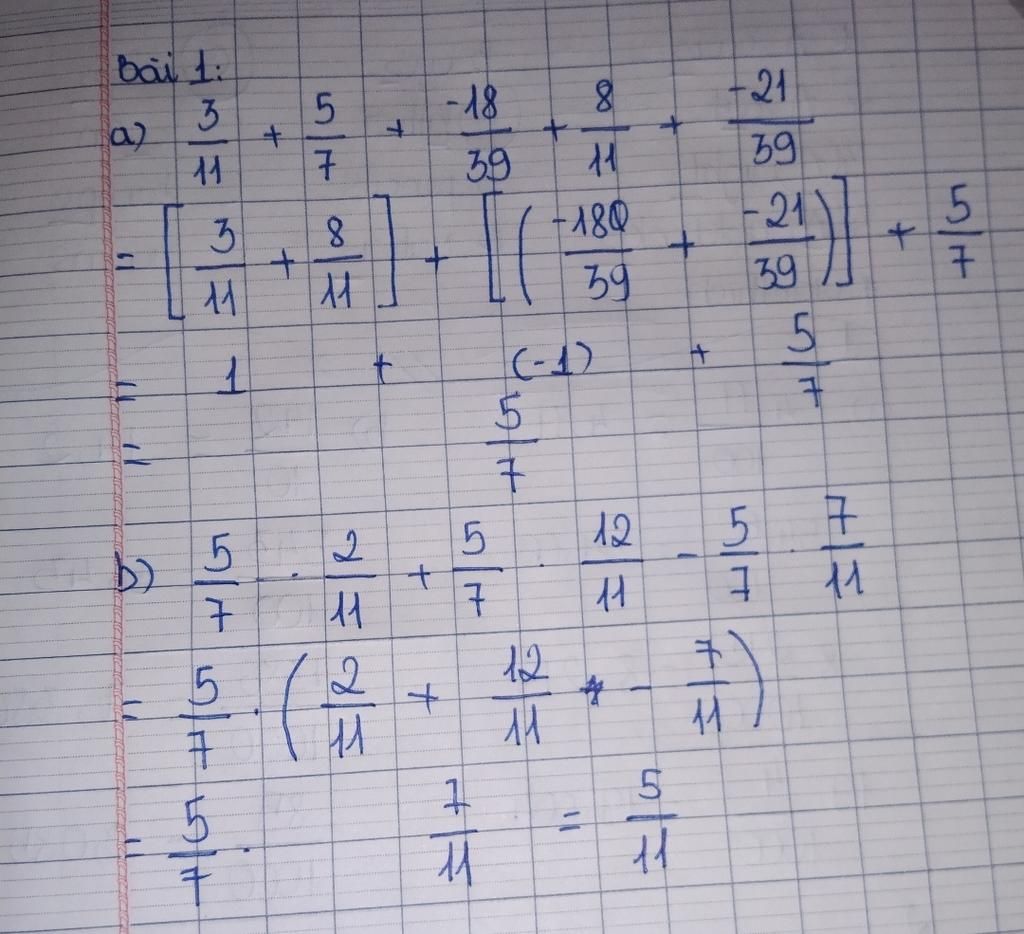 Bài 1:
a) 3/11 + 5/7 + -18/39 + 8/11 + -21/39
= [3/11 + 8/11] + [(-180/39 + -21/39)] + 5/7
= 1 + (-1) + 5/7
= 5/7
b) 5/7 . 2/11 + 5/7 . 12/11 - 5/7 . 7/11
= 5/7 . (2/11 + 12/11 - 7/11)
= 5/7 . 7/11 = 5/11